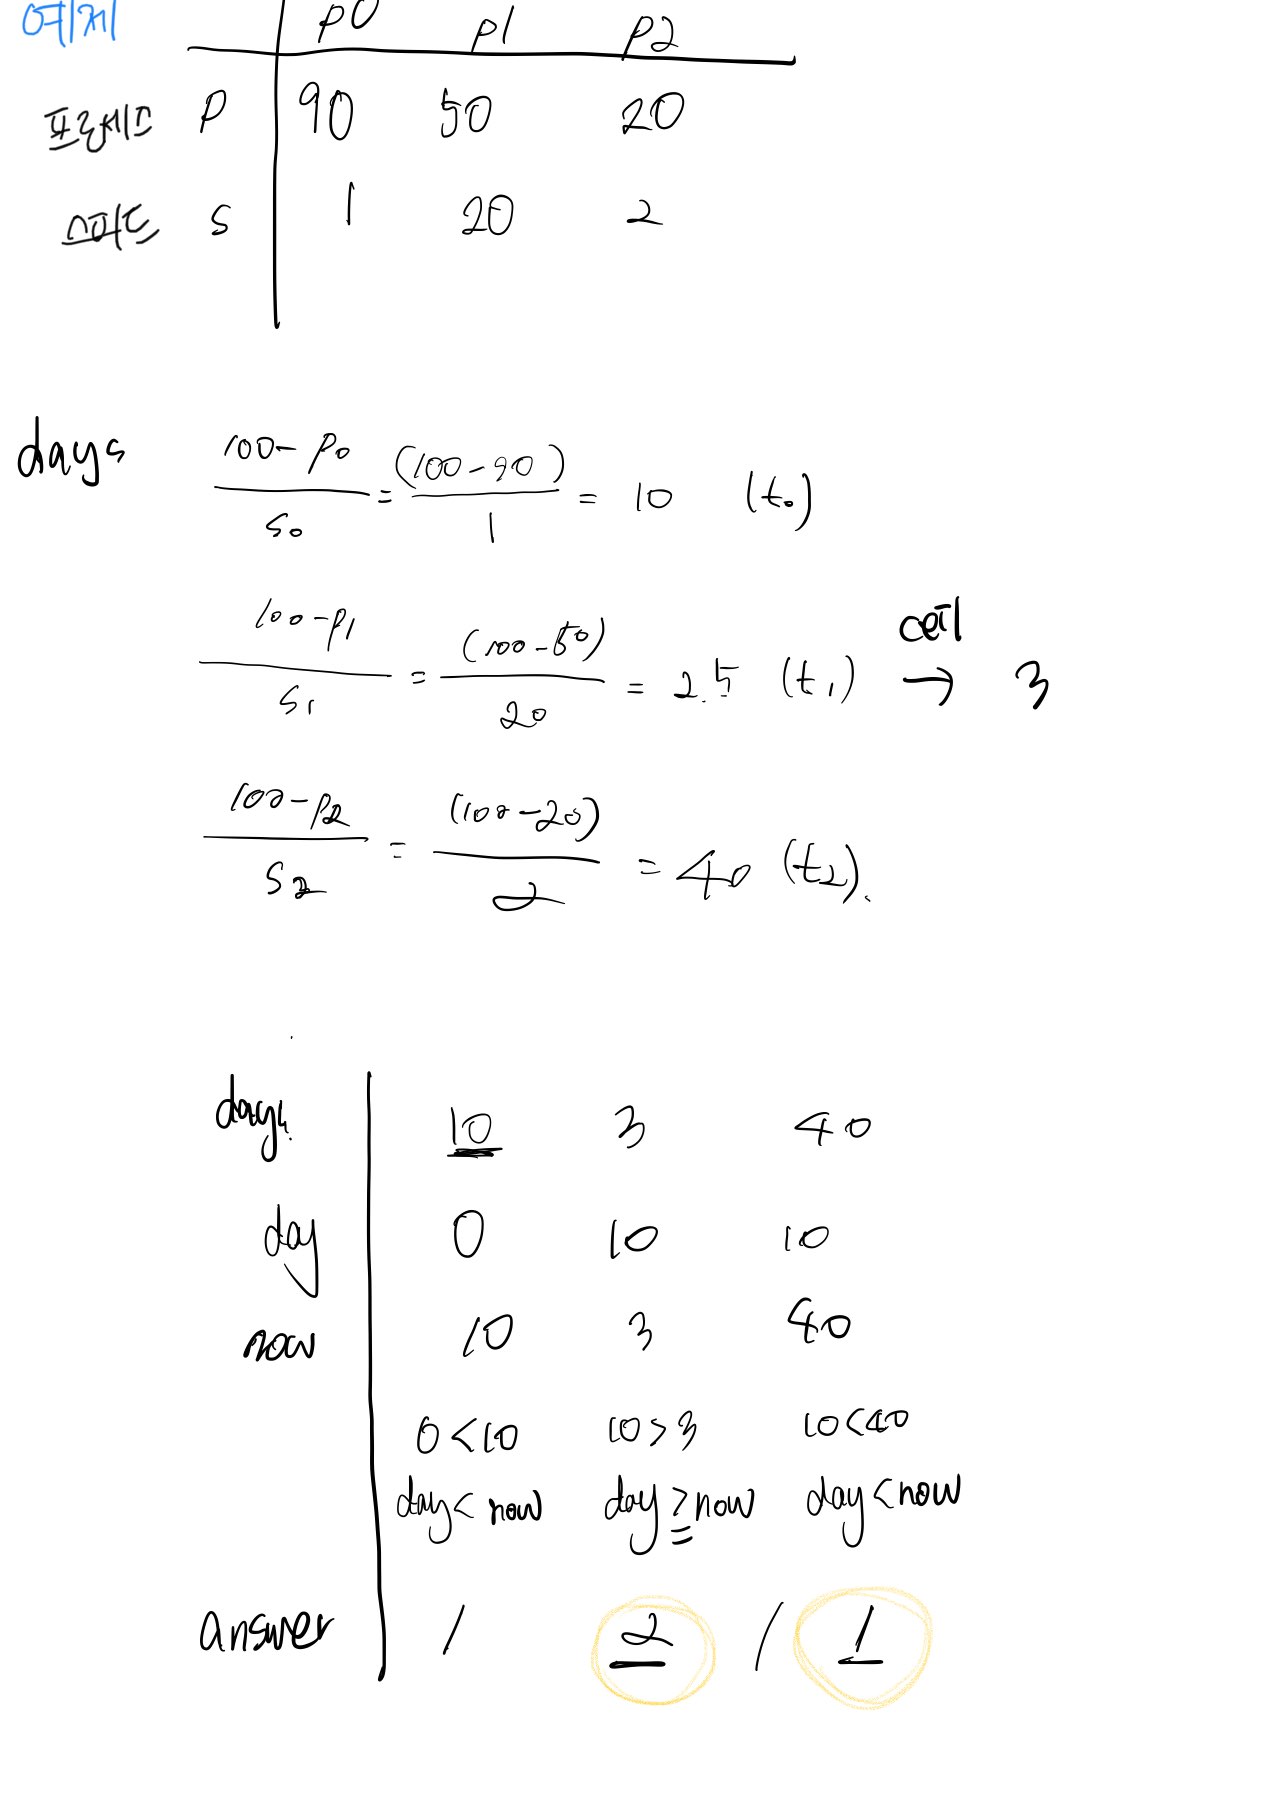 예제
p0 p1 p2
프로세스 P 90 50 20
스피드 S 1 20 2
days (100-p0)/s0 = (100-90)/1 = 10 (t0)
(100-p1)/s1 = (100-50)/20 = 2.5 (t1) → 3
ceil
(100-p2)/s2 = (100-20)/2 = 40 (t2).
days. 10 3 40
day 0 10 10
now 10 3 40
0<10 10>3 10<40
day< now day≥now day<now
answer 1 2 / 1